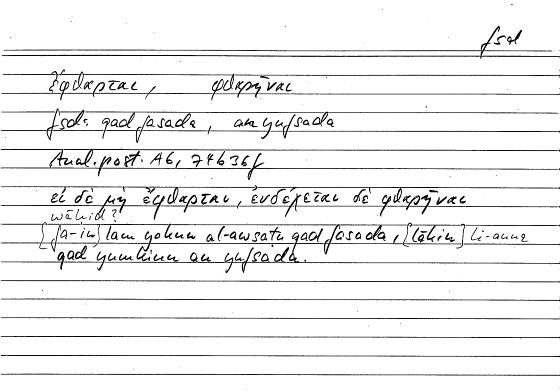 fsd
ἔφθαρται, φθαρῆναι
fsd: qad fasada, an yufsada
Anal. post. A6, 74b36f
εἰ δὲ μὴ ἔφθαρται, ἐνδέχεται δὲ φθαρῆναι
wāḥid?
[fa-in] lam yakun al-awsaṭu qad fasada, [lākin] li-anna
qad yumkinu an yufsida.